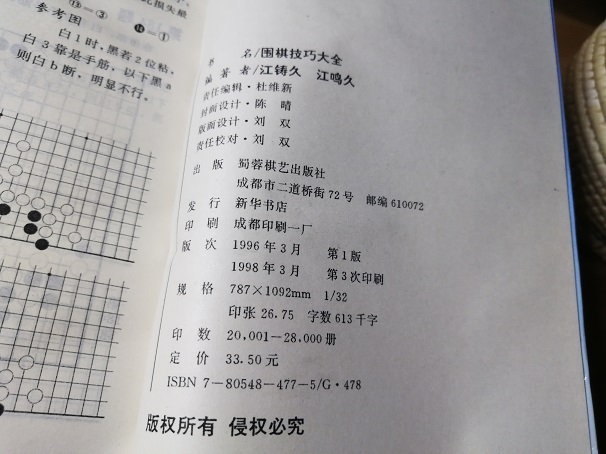 ⑬—③ ⑭—①
参考图
白1时,黑若2位粘,
白3靠是手筋,以下黑a
则白b断,明显不行。
书 名/围棋技巧大全
编 著 者/江铸久 江鸣久
责任编辑·杜维新
封面设计·陈 晴
版面设计·刘 双
责任校对·刘 双
出 版 蜀蓉棋艺出版社
成都市二道桥街72号 邮编 610072
发 行 新华书店
印 刷 成都印刷一厂
版 次 1996年3月 第1版
1998年3月 第3次印刷
规 格 787×1092mm 1/32
印张 26.75 字数 613千字
印 数 20,001—28,000册
定 价 33.50元
ISBN 7—80548—477—5/G·478
版权所有 侵权必究